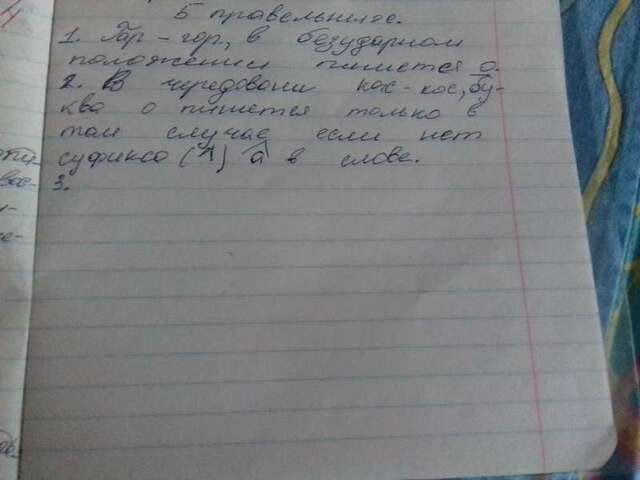 5 правельшое.
1. Гар-гор, в безударном
положении пишется о.
2. В чередовани кас-кос, бу-
ква о пишется только в
том случае если нет
суфикса (^) а в слове.
3.